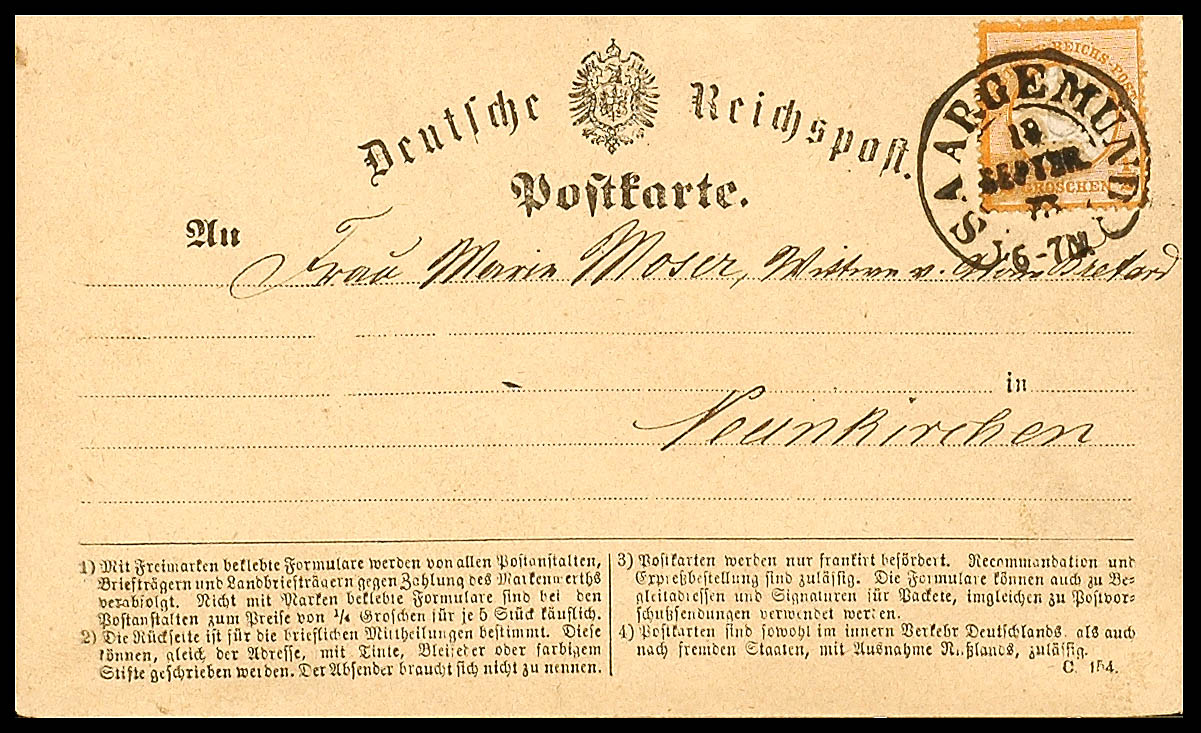 Deutsche Reichspost.
Postkarte.
REICHS-POST
GROSCHEN
SAARGEMUND
18
SEPTBR
73
6-7N
An
Frau Marie Moser, Wittwe v.
in
Neunkirchen
1) Mit Freimarken beklebte Formulare werden von allen Postanstalten,
Briefträgern und Landbriefträgern gegen Zahlung des Markenwerths
verabfolgt. Nicht mit Marken beklebte Formulare sind bei den
Postanstalten zum Preise von ¼ Groschen für je 5 Stück käuflich.
2) Die Rückseite ist für die brieflichen Mittheilungen bestimmt. Diese
können, gleich der Adresse, mit Tinte, Bleifeder oder farbigem
Stifte geschrieben werden. Der Absender braucht sich nicht zu nennen.
3) Postkarten werden nur frankirt befördert. Recommandation und
Expreßbestellung sind zulässig. Die Formulare können auch zu Be-
gleitadressen und Signaturen für Packete, imgleichen zu Postvor-
schußsendungen verwendet werden.
4) Postkarten sind sowohl im innern Verkehr Deutschlands, als auch
nach fremden Staaten, mit Ausnahme Rußlands, zulässig.
C. 154.